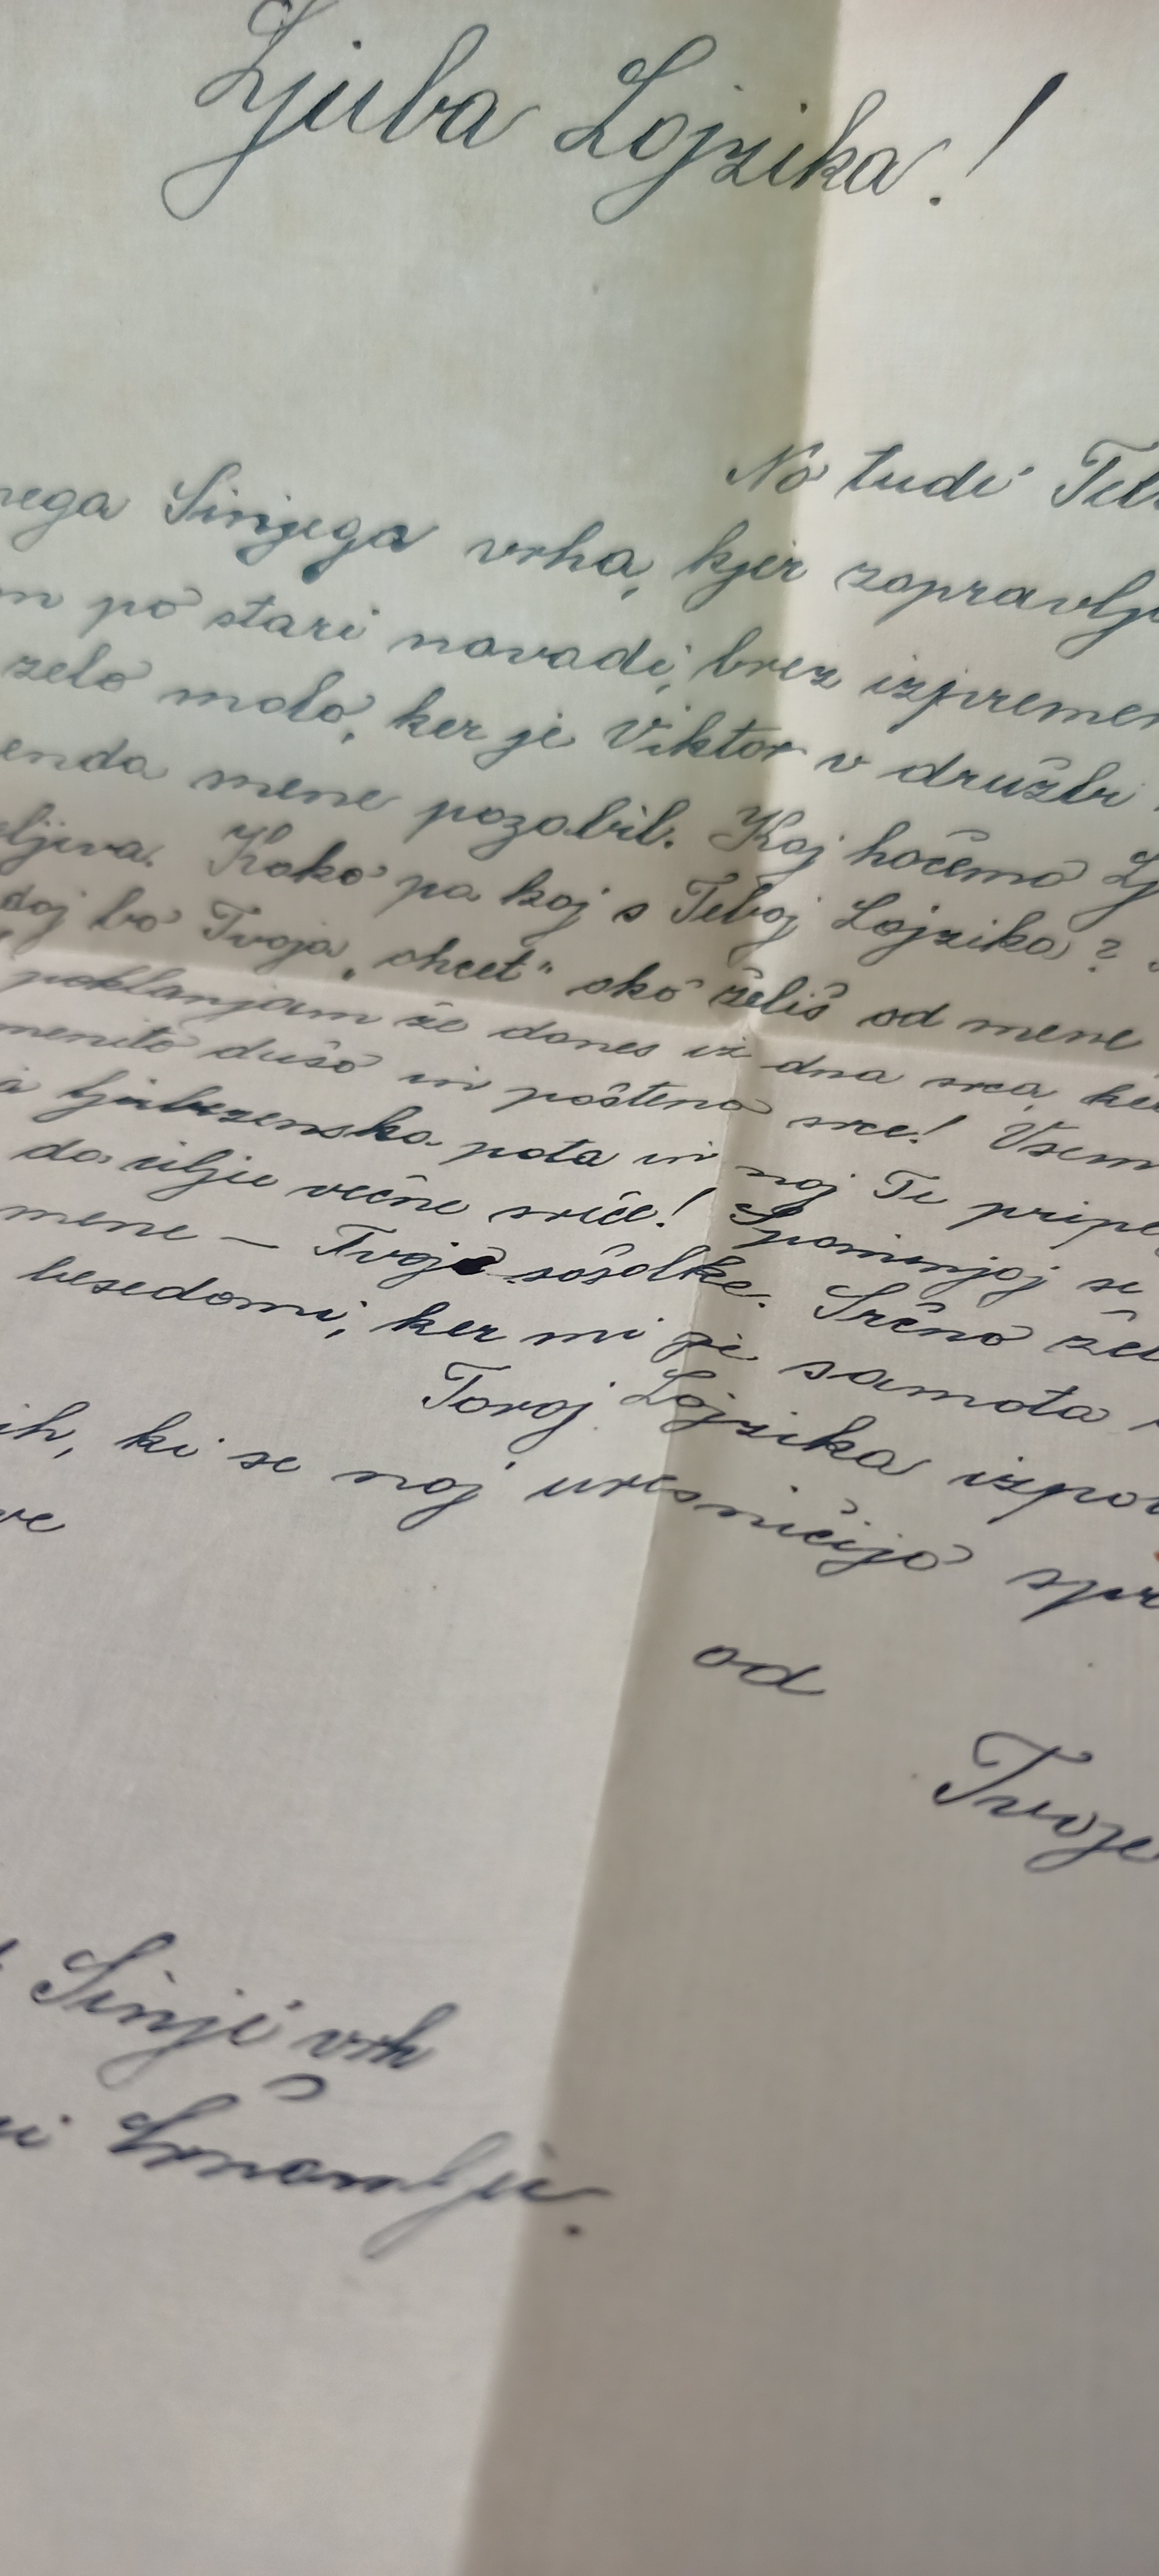 Ljuba Lojzika!
No tudi Teb
nega Sinjega vrha, kjer zapravlja
m po stari navadi, brez izpremem
zelo malo, ker je Viktor v družbi
enda mene pozabil. Kaj hočemo Lj
ljiva. Kako pa kaj s Teboj Lojzika?
daj bo Tvoja „ohcet" ako želiš od mene
poklanjam že danes iz dna srca, ker
menito dušo in pošteno srce! Vsem
a ljubezenska pota in naj Te pripe
do cilju večne sreče! Spominjaj se
mene — Tvoje sošolke. Srčno žel
besedami, ker mi je samota
Tovoj Lojzika izpov
ih, ki se naj uresničijo spr
ve
od
Tvoje
Sinji vrh
Črnomlju.